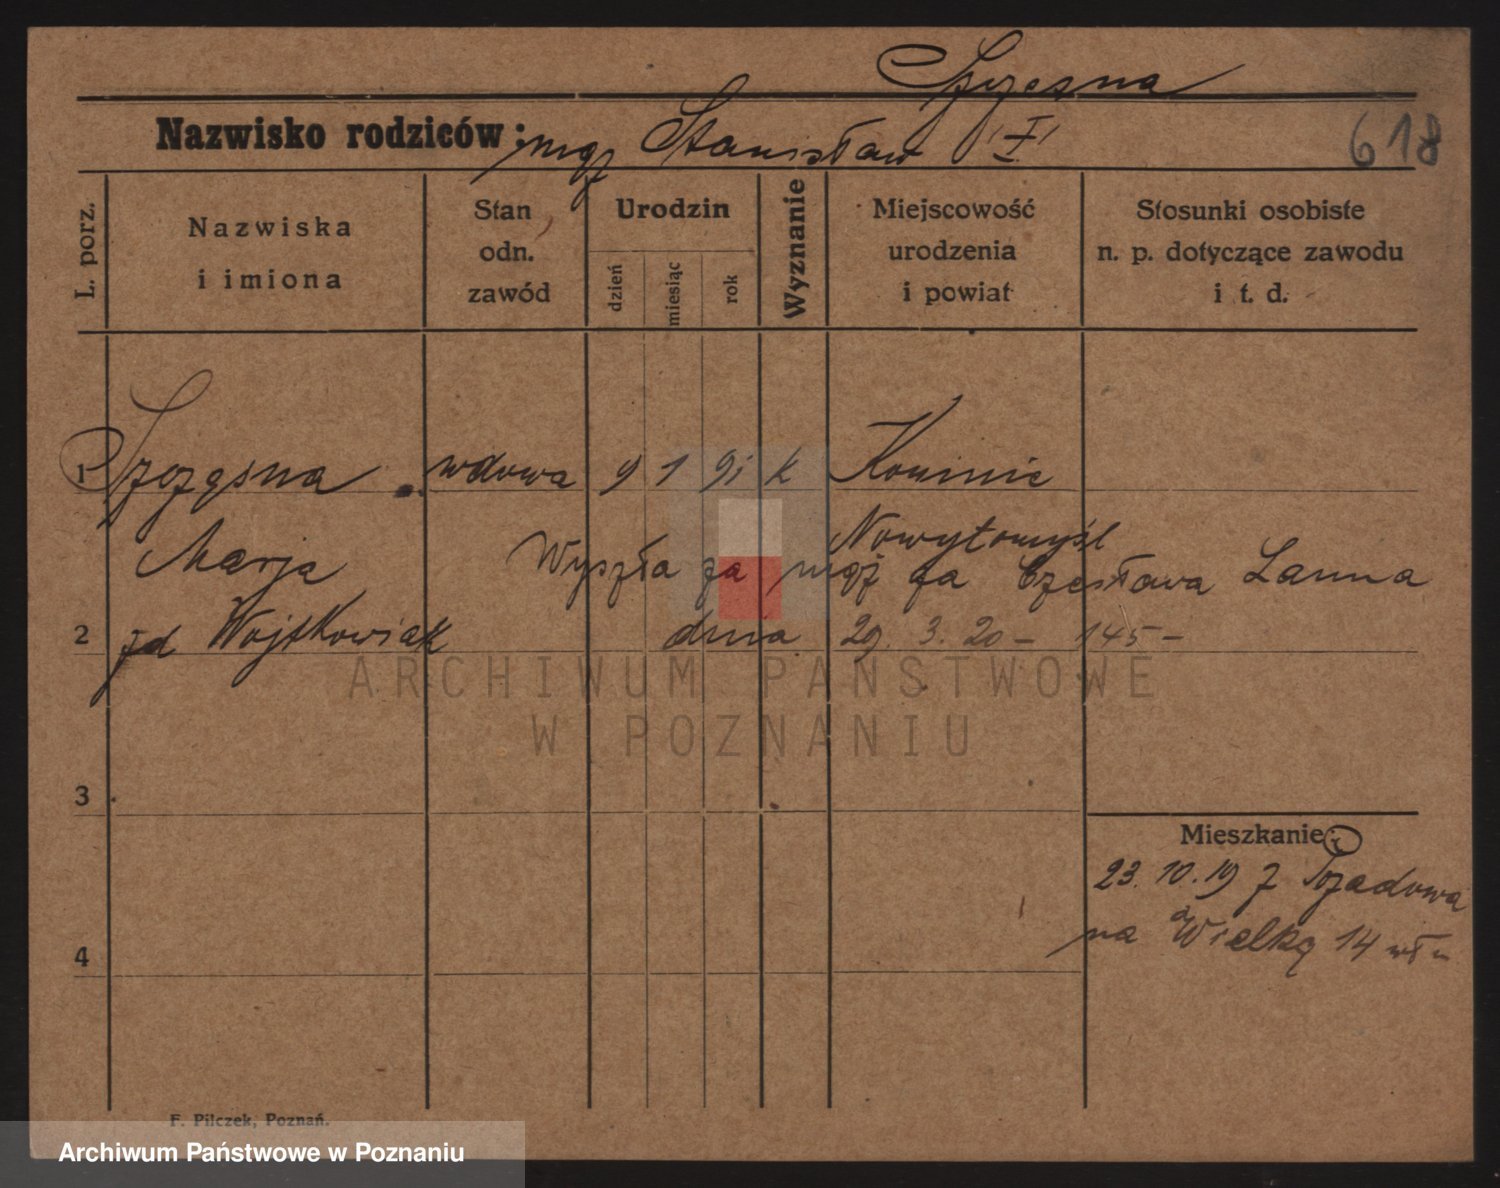 Szczęsna
Nazwisko rodziców: mąż Stanisław I
618
L. porz.
Nazwiska
i imiona
Stan
odn.
zawód
Urodzin
dzień
miesiąc
rok
Wyznanie
Miejscowość
urodzenia
i powiat
Stosunki osobiste
n. p. dotyczące zawodu
i t. d.
1 Szczęsna wdowa 9 1 91 k
Nowytomyśl
Marja Wyszła za mąż za Czesława
2 zd Wojtkowiak dnia 29. 3. 20 – 145 –
ARCHIWUM PAŃSTWOWE
W POZNANIU
3
Mieszkanie:
23. 10. 19 z
na Wielką 14
4
F. Pilczek, Poznań.
Archiwum Państwowe w Poznaniu